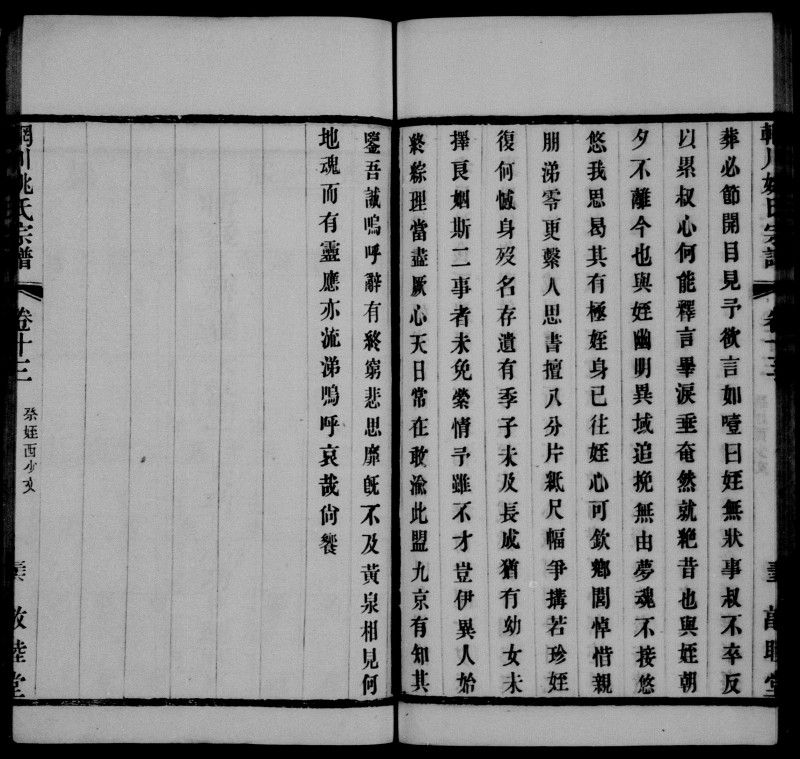 葬必節開目見予欲言如噎曰姪無狀事叔不卒反
以累叔心何能釋言畢淚垂奄然就絶昔也與姪朝
夕不離今也與姪幽明異域追挽無由夢魂不接悠
悠我思曷其有極姪身已往姪心可欽鄉閭悼惜親
朋涕零更繫人思書擅八分片紙尺幅爭搆若珍姪
復何憾身歿名存遺有季子未及長成猶有幼女未
擇良姻斯二事者未免縈情予雖不才豈伊異人始
終綜理當盡厥心天日常在敢渝此盟九京有知其
鑒吾誠嗚呼辭有終窮悲思靡旣不及黃泉相見何
地魂而有靈應亦流涕嗚呼哀哉尙饗
輞川姚氏宗譜
卷十三
祭姪酉少文
敦睦堂